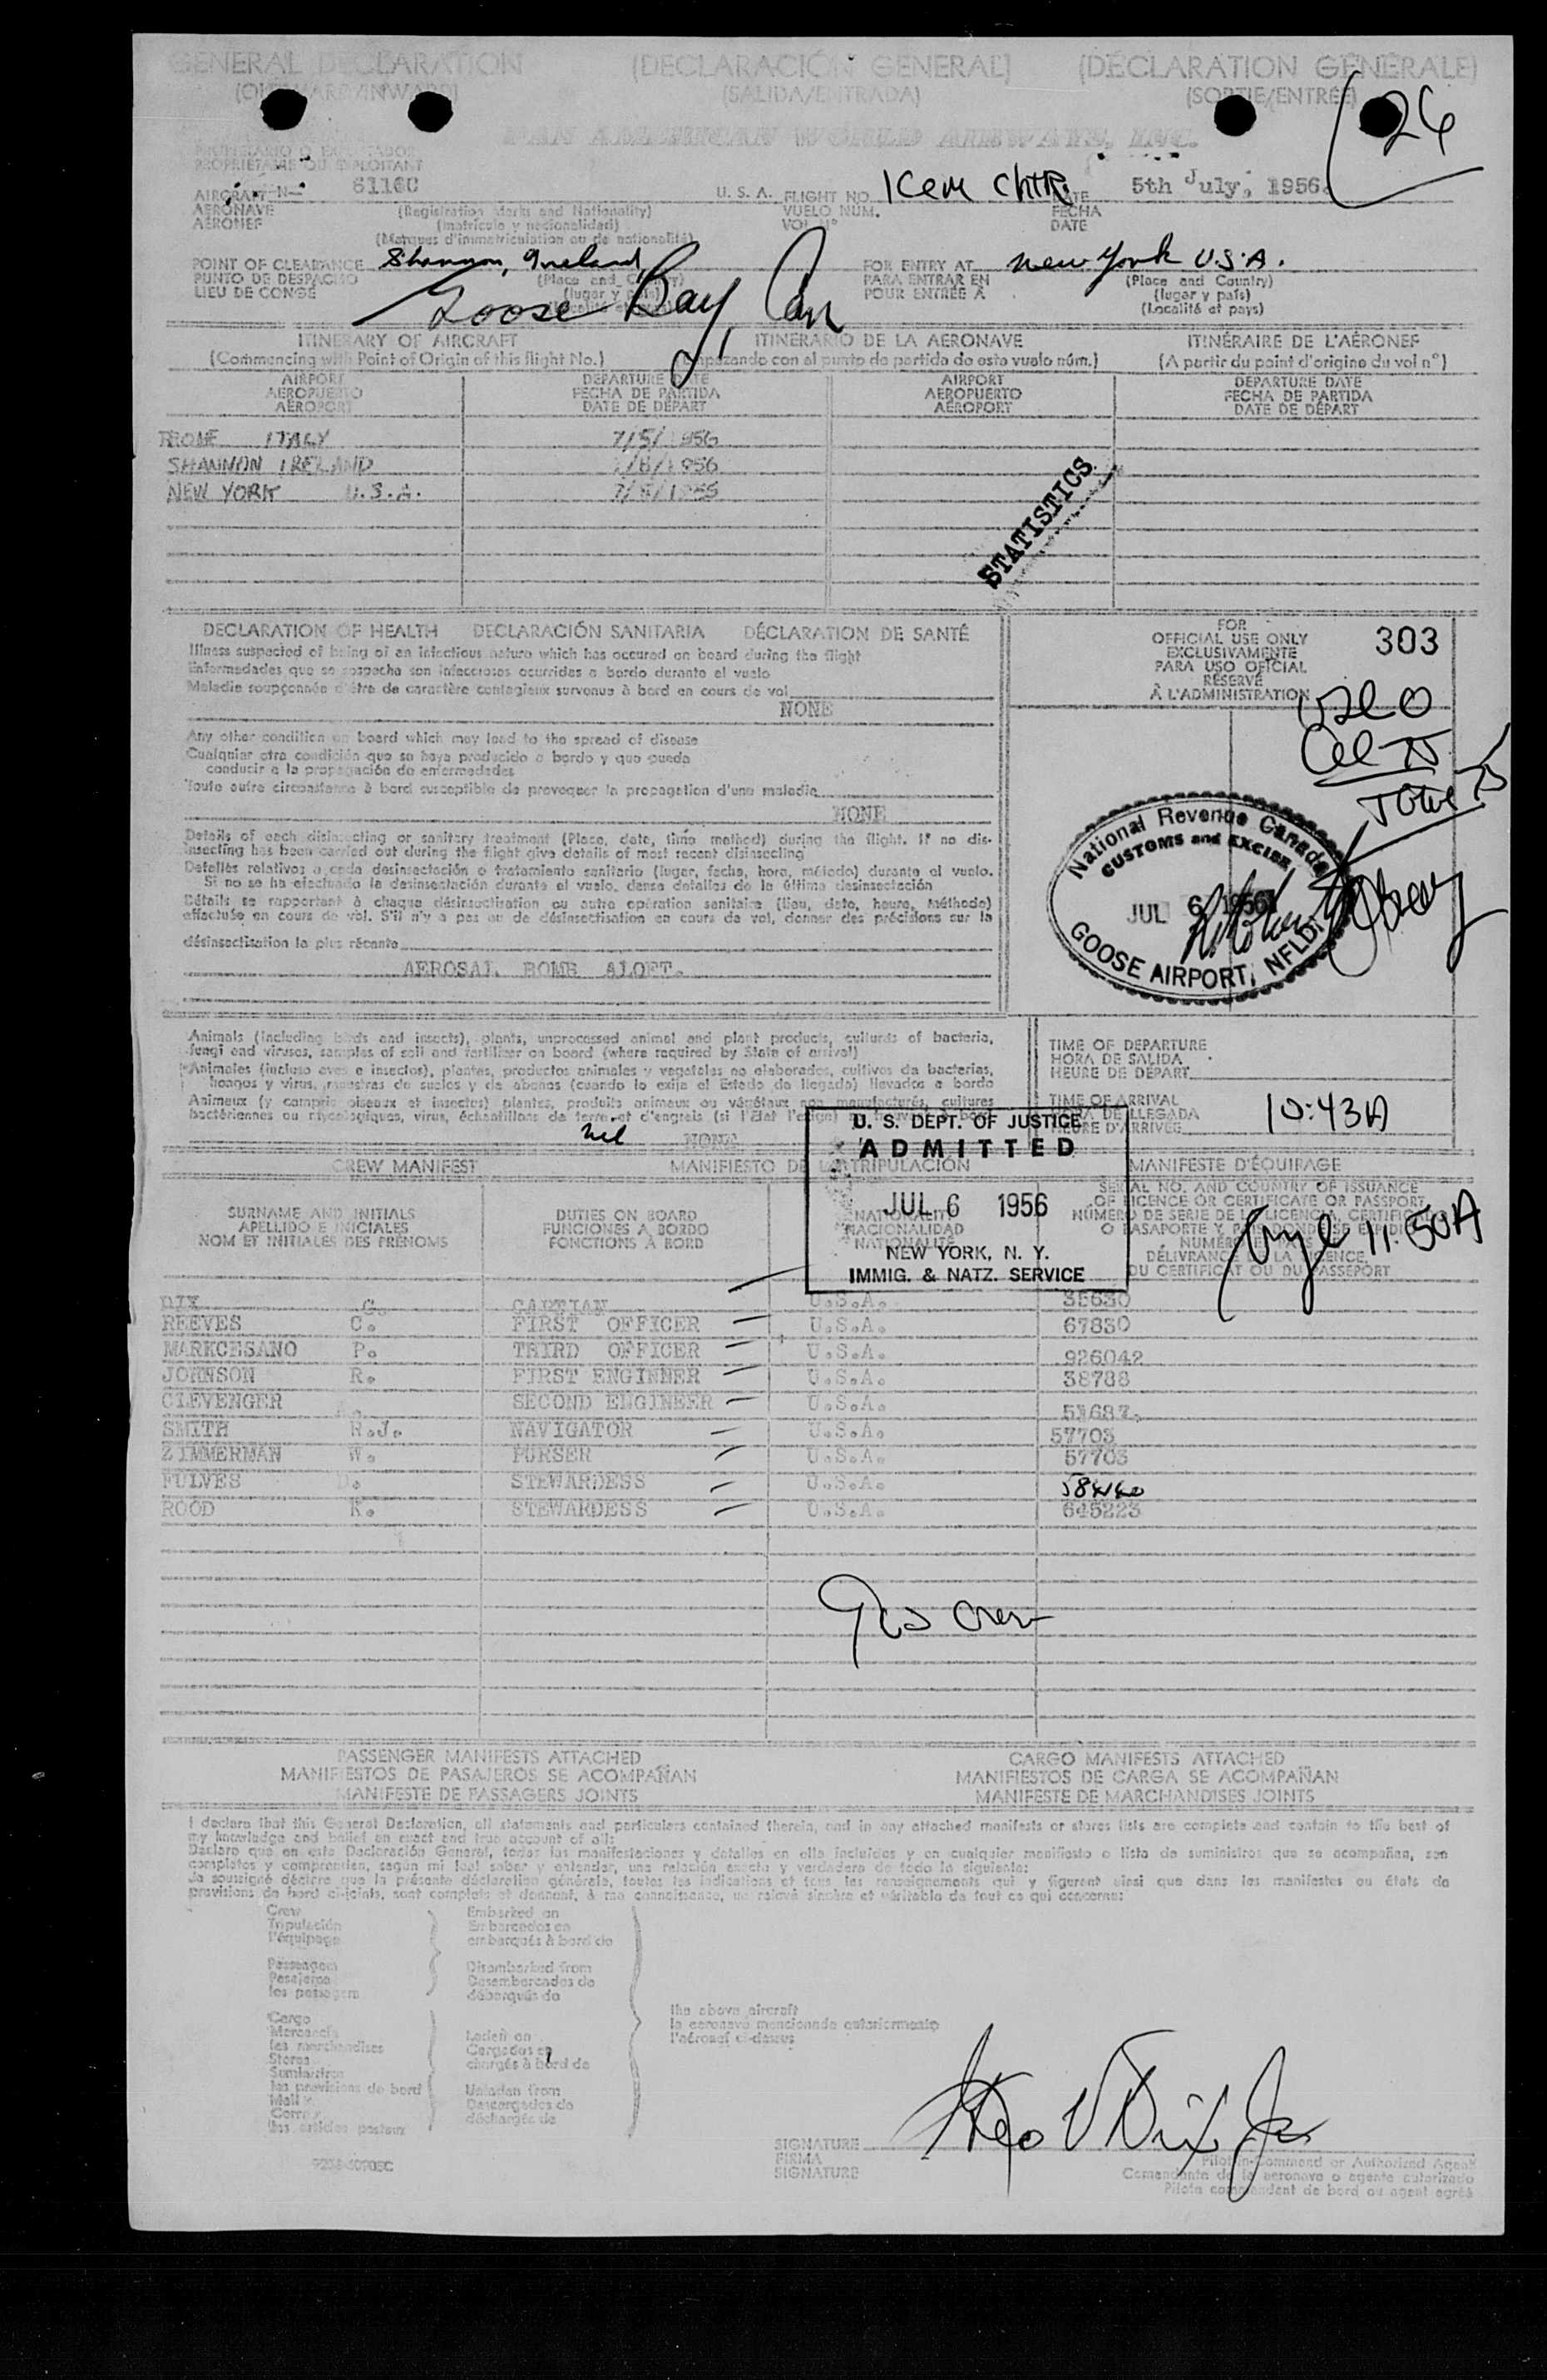 GENERAL DECLARATION (DECLARACIÓN GENERAL) (DÉCLARATION GÉNÉRALE)
(OUTWARD/INWARD) (SALIDA/ENTRADA) (SORTIE/ENTRÉE)
26
PAN AMERICAN WORLD AIRWAYS, INC.
PROPRIÉTAIRE OU EXPLOITANT
AIRCRAFT N- 6116C U. S. A. FLIGHT NO. DATE 5th July, 1956.
AERONAVE (Registration Marks and Nationality) VUELO NÚM. FECHA
AÉRONEF (matrícula y nacionalidad) VOL Nº DATE
(Marques d'immatriculation ou de nationalité)
POINT OF CLEARANCE Shannon, Ireland FOR ENTRY AT New York U.S.A.
PUNTO DE DESPACHO (Place and Country) PARA ENTRAR EN (Place and Country)
LIEU DE CONGÉ (lugar y país) POUR ENTRÉE À (lugar y país)
Goose Bay, Can (Localité et pays)
ITINERARY OF AIRCRAFT ITINERARIO DE LA AERONAVE ITINÉRAIRE DE L'AÉRONEF
(Commencing with Point of Origin of this flight No.) (Empezando con el punto de partida de este vuelo núm.) (A partir du point d'origine du vol nº)
AIRPORT DEPARTURE DATE AIRPORT DEPARTURE DATE
AEROPUERTO FECHA DE PARTIDA AEROPUERTO FECHA DE PARTIDA
AÉROPORT DATE DE DÉPART AÉROPORT DATE DE DÉPART
ROME ITALY 7/5/1956
SHANNON IRELAND
NEW YORK U.S.A.
STATISTICS
DECLARATION OF HEALTH DECLARACIÓN SANITARIA DÉCLARATION DE SANTÉ
Illness suspected of being of an infectious nature which has occured on board during the flight
Enfermedades que se sospecha son infecciosas ocurridas a bordo durante el vuelo
Maladie soupçonnée d'être de caractère contagieux survenue à bord en cours de vol
NONE
Any other condition on board which may lead to the spread of disease
Cualquier otra condición que se haya producido a bordo y que pueda
conducir a la propagación de enfermedades
Toute autre circonstance à bord susceptible de provoquer la propagation d'une maladie
NONE
Details of each disinsecting or sanitary treatment (Place, date, time method) during the flight. If no dis-
insecting has been carried out during the flight give details of most recent disinsecting
Detalles relativos a cada desinsectación o tratamiento sanitario (lugar, fecha, hora, método) durante el vuelo.
Si no se ha efectuado la desinsectación durante el vuelo, dense detalles de la última desinsectación
Détails se rapportant à chaque désinsectisation ou autre opération sanitaire (lieu, date, heure, méthode)
effectuée en cours de vol. S'il n'y a pas eu de désinsectisation en cours de vol, donner des précisions sur la
désinsectisation la plus récente
AEROSAL BOMB ALOFT.
FOR
OFFICIAL USE ONLY 303
EXCLUSIVAMENTE
PARA USO OFICIAL
RÉSERVÉ
À L'ADMINISTRATION
National Revenue Canada
CUSTOMS and EXCISE
JUL 6 1956
GOOSE AIRPORT, NFLD.
Animals (including birds and insects), plants, unprocessed animal and plant products, cultures of bacteria,
fungi and viruses, samples of soil and fertilizer on board (where required by State of arrival)
Animales (incluso aves e insectos), plantas, productos animales y vegetales no elaborados, cultivos de bacterias,
hongos y virus, muestras de suelos y de abonos (cuando lo exija el Estado de llegada) llevados a bordo
Animaux (y compris oiseaux et insectes) plantes, produits animaux ou végétaux non manufacturés, cultures
bactériennes ou mycologiques, virus, échantillons de terre et d'engrais (si l'État l'exige)
nil NONE
TIME OF DEPARTURE
HORA DE SALIDA
HEURE DE DÉPART
TIME OF ARRIVAL
HORA DE LLEGADA 10:43A
HEURE D'ARRIVÉE
U. S. DEPT. OF JUSTICE
ADMITTED
JUL 6 1956
NEW YORK, N. Y.
IMMIG. & NATZ. SERVICE
CREW MANIFEST MANIFIESTO DE LA TRIPULACIÓN MANIFESTE D'ÉQUIPAGE
SURNAME AND INITIALS DUTIES ON BOARD NATIONALITY SERIAL NO. AND COUNTRY OF ISSUANCE
APELLIDO E INICIALES FUNCIONES A BORDO NACIONALIDAD OF LICENCE OR CERTIFICATE OR PASSPORT
NOM ET INITIALES DES PRÉNOMS FONCTIONS À BORD NATIONALITÉ
DU CERTIFICAT OU DU PASSEPORT
11:50A
DIX G. CAPTIAN U.S.A. 35630
REEVES C. FIRST OFFICER U.S.A. 67830
MARKCESANO P. THIRD OFFICER U.S.A. 926042
JOHNSON R. FIRST ENGINNER U.S.A. 38788
CLEVENGER SECOND ENGINEER U.S.A. 51687
SMITH R.J. NAVIGATOR U.S.A. 57703
ZIMMERMAN W. PURSER U.S.A. 57703
FULVES STEWARDESS U.S.A.
ROOD K. STEWARDESS U.S.A. 645223
crew
PASSENGER MANIFESTS ATTACHED CARGO MANIFESTS ATTACHED
MANIFIESTOS DE PASAJEROS SE ACOMPAÑAN MANIFIESTOS DE CARGA SE ACOMPAÑAN
MANIFESTE DE PASSAGERS JOINTS MANIFESTE DE MARCHANDISES JOINTS
I declare that this General Declaration, all statements and particulars contained therein, and in any attached manifests or stores lists are complete and contain to the best of
my knowledge and belief an exact and true account of all:
Declaro que en esta Declaración General, todas las manifestaciones y detalles en ella incluidos y en cualquier manifiesto o lista de suministros que se acompañan, son
completos y comprenden, según mi leal saber y entender, una relación exacta y verdadera de todo lo siguiente:
Je soussigné déclare que la présente déclaration générale, toutes les indications et tous les renseignements qui y figurent ainsi que dans les manifestes ou états de
provisions de bord ci-joints, sont complets et donnent, à ma connaissance, un relevé sincère et véritable de tout ce qui concerne:
Crew Embarked on
Tripulación Embarcados en
l'équipage embarqués à bord de
Passengers Disembarked from
Pasajeros Desembarcados de
les passagers débarqués de
the above aircraft
la aeronave mencionada anteriormente
l'aéronef ci-dessus
Cargo
Mercancía Laden on
les marchandises Cargados en
Stores chargés à bord de
Suministros
les provisions de bord Unladen from
Mail Descargados de
Correo déchargés de
les articles postaux
SIGNATURE Geo V Dix Jr
FIRMA Pilot in Command or Authorized Agent
SIGNATURE Comandante de la aeronave o agente autorizado
Pilote commandant de bord ou agent agréé